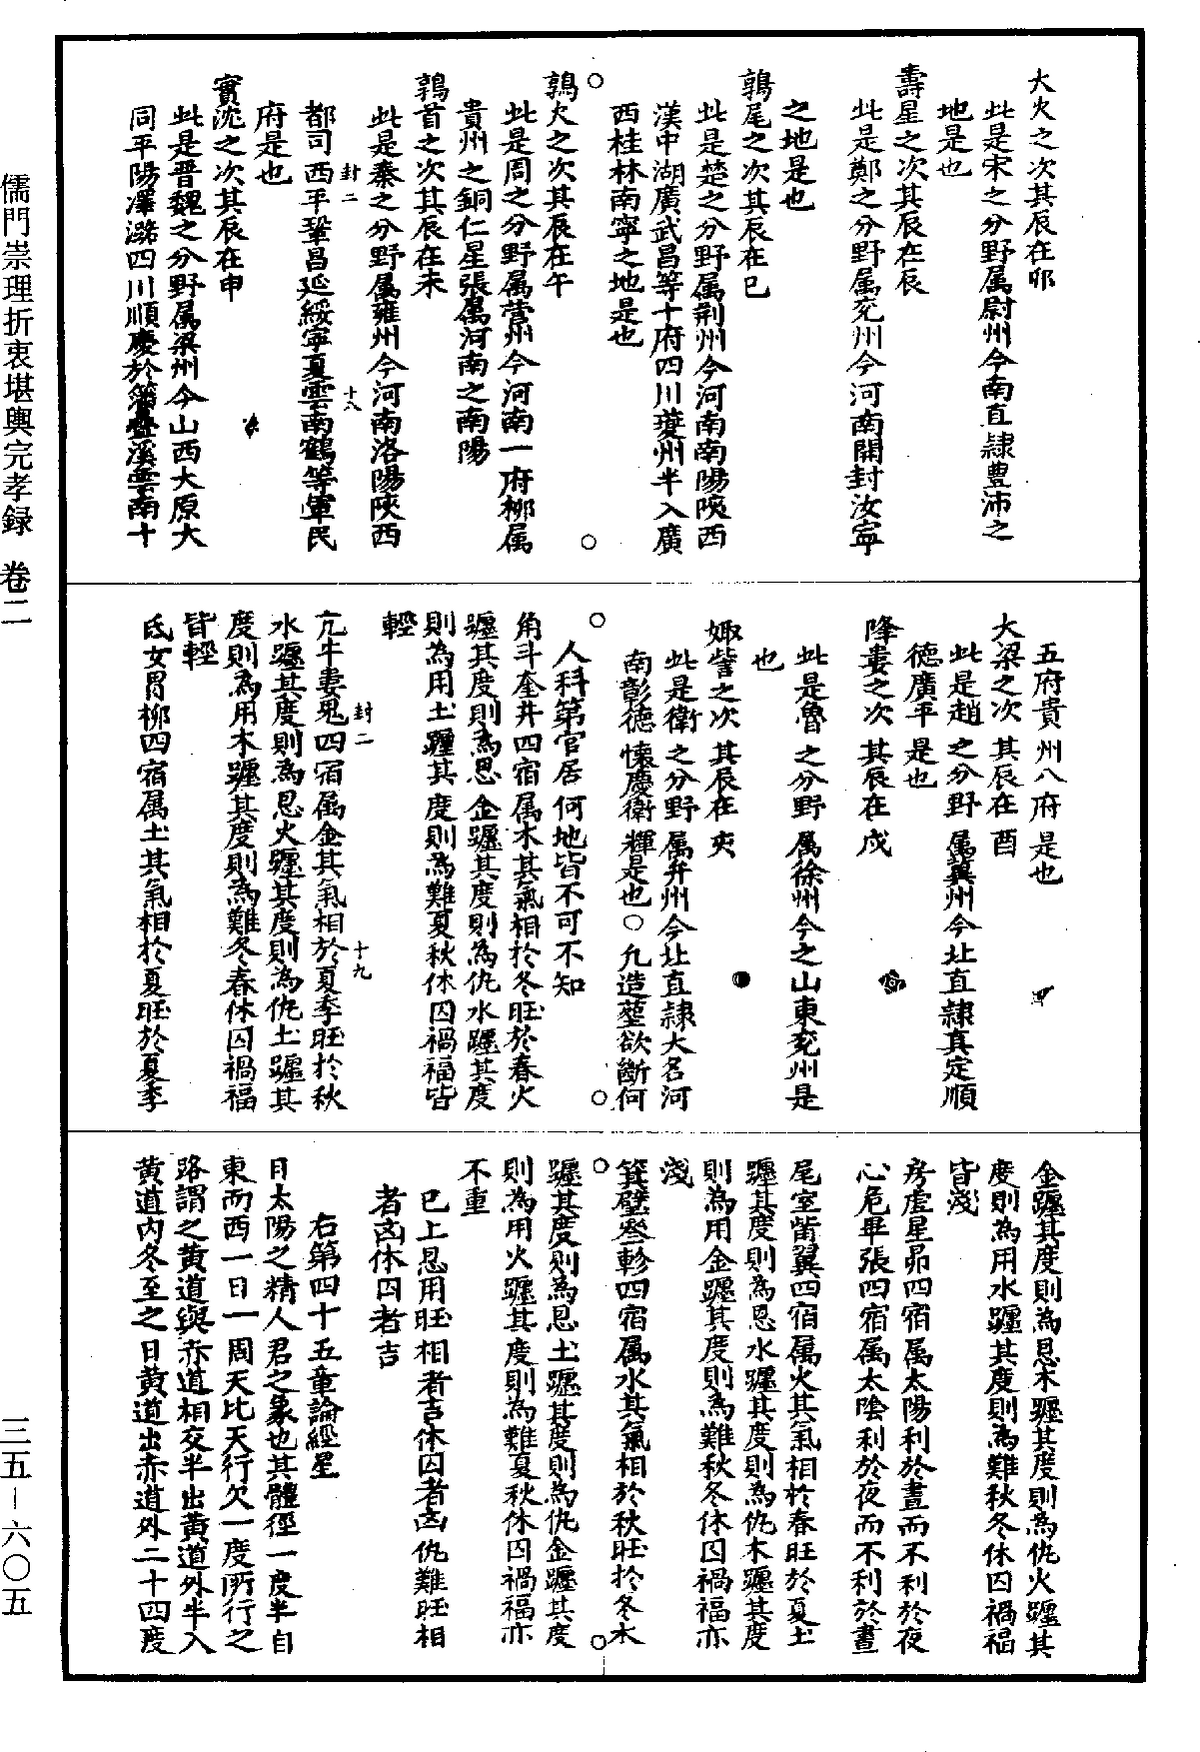 大火之次其辰在卯
此是宋之分野属尉州今南直隷豊沛之
地是也
壽星之次其辰在辰
此是鄭之分野属兖州今河南開封汝寧
之地是也
鶉尾之次其辰在巳
此是楚之分野属荆州今河南南陽陜西
漢中湖廣武昌等十府四川瓊州半入廣
西桂林南寧之地是也
鶉火之次其辰在午
此是周之分野属營州今河南一府柳属
貴州之銅仁星張属河南之南陽
鶉首之次其辰在未
此是秦之分野属雍州今河南洛陽陜西
封二
十八
都司西平鞏昌延綏寧夏雲南鶴等軍民
府是也
實沈之次其辰在申
此是晋魏之分野属梁州今山西大原大
同平陽澤潞四川順慶於疊溪雲南十
五府貴州八府是也
大梁之次其辰在酉
此是趙之分野属冀州今北直隷真定順
徳廣平是也
降婁之次其辰在戍
此是魯之分野属徐州今之山東兖州是
也
娵訾之次其辰在亥
此是衛之分野属弁州今北直隷大名河
南彰德懐慶衛輝是也〇凢造塟欲斷何
人科第官居何地皆不可不知
角斗奎井四宿属木其氣相於冬旺於春火
躔其度則為恩金躔其度則為仇水躔其度
則為用土躔其度則為難夏秋休囚禍福皆
輕
封二
十九
亢牛婁鬼四宿属金其氣相於夏季旺於秋
水躔其度則為恩火躔其度則為仇土躔其
度則為用木躔其度則為難冬春休囚禍福
皆輕
氐女胃柳四宿属土其氣相於夏旺於夏季
金躔其度則為恩木躔其度則為仇火躔其
度則為用水躔其度則為難秋冬休囚禍福
皆淺
房虚星昴四宿属太陽利於晝而不利於夜
心危畢張四宿属太陰利於夜而不利於晝
尾室觜翼四宿属火其氣相於春旺於夏土
躔其度則為恩水躔其度則為仇木躔其度
則為用金躔其度則為難秋冬休囚禍福亦
淺
箕壁参軫四宿属水其氣相於秋旺於冬木
躔其度則為恩土躔其度則為仇金躔其度
則為用火躔其度則為難夏秋休囚禍福亦
不重
已上恩用旺相者吉休囚者凶仇難旺相
者凶休囚者吉
右第四十五章論經星
日太陽之精人君之象也其體徑一度半自
東而西一日一周天比天行欠一度所行之
路謂之黄道與赤道相交半出黄道外半入
黄道内冬至之日黄道出赤道外二十四度
儒門崇理折衷堪輿完孝録 卷二
三五-六〇五